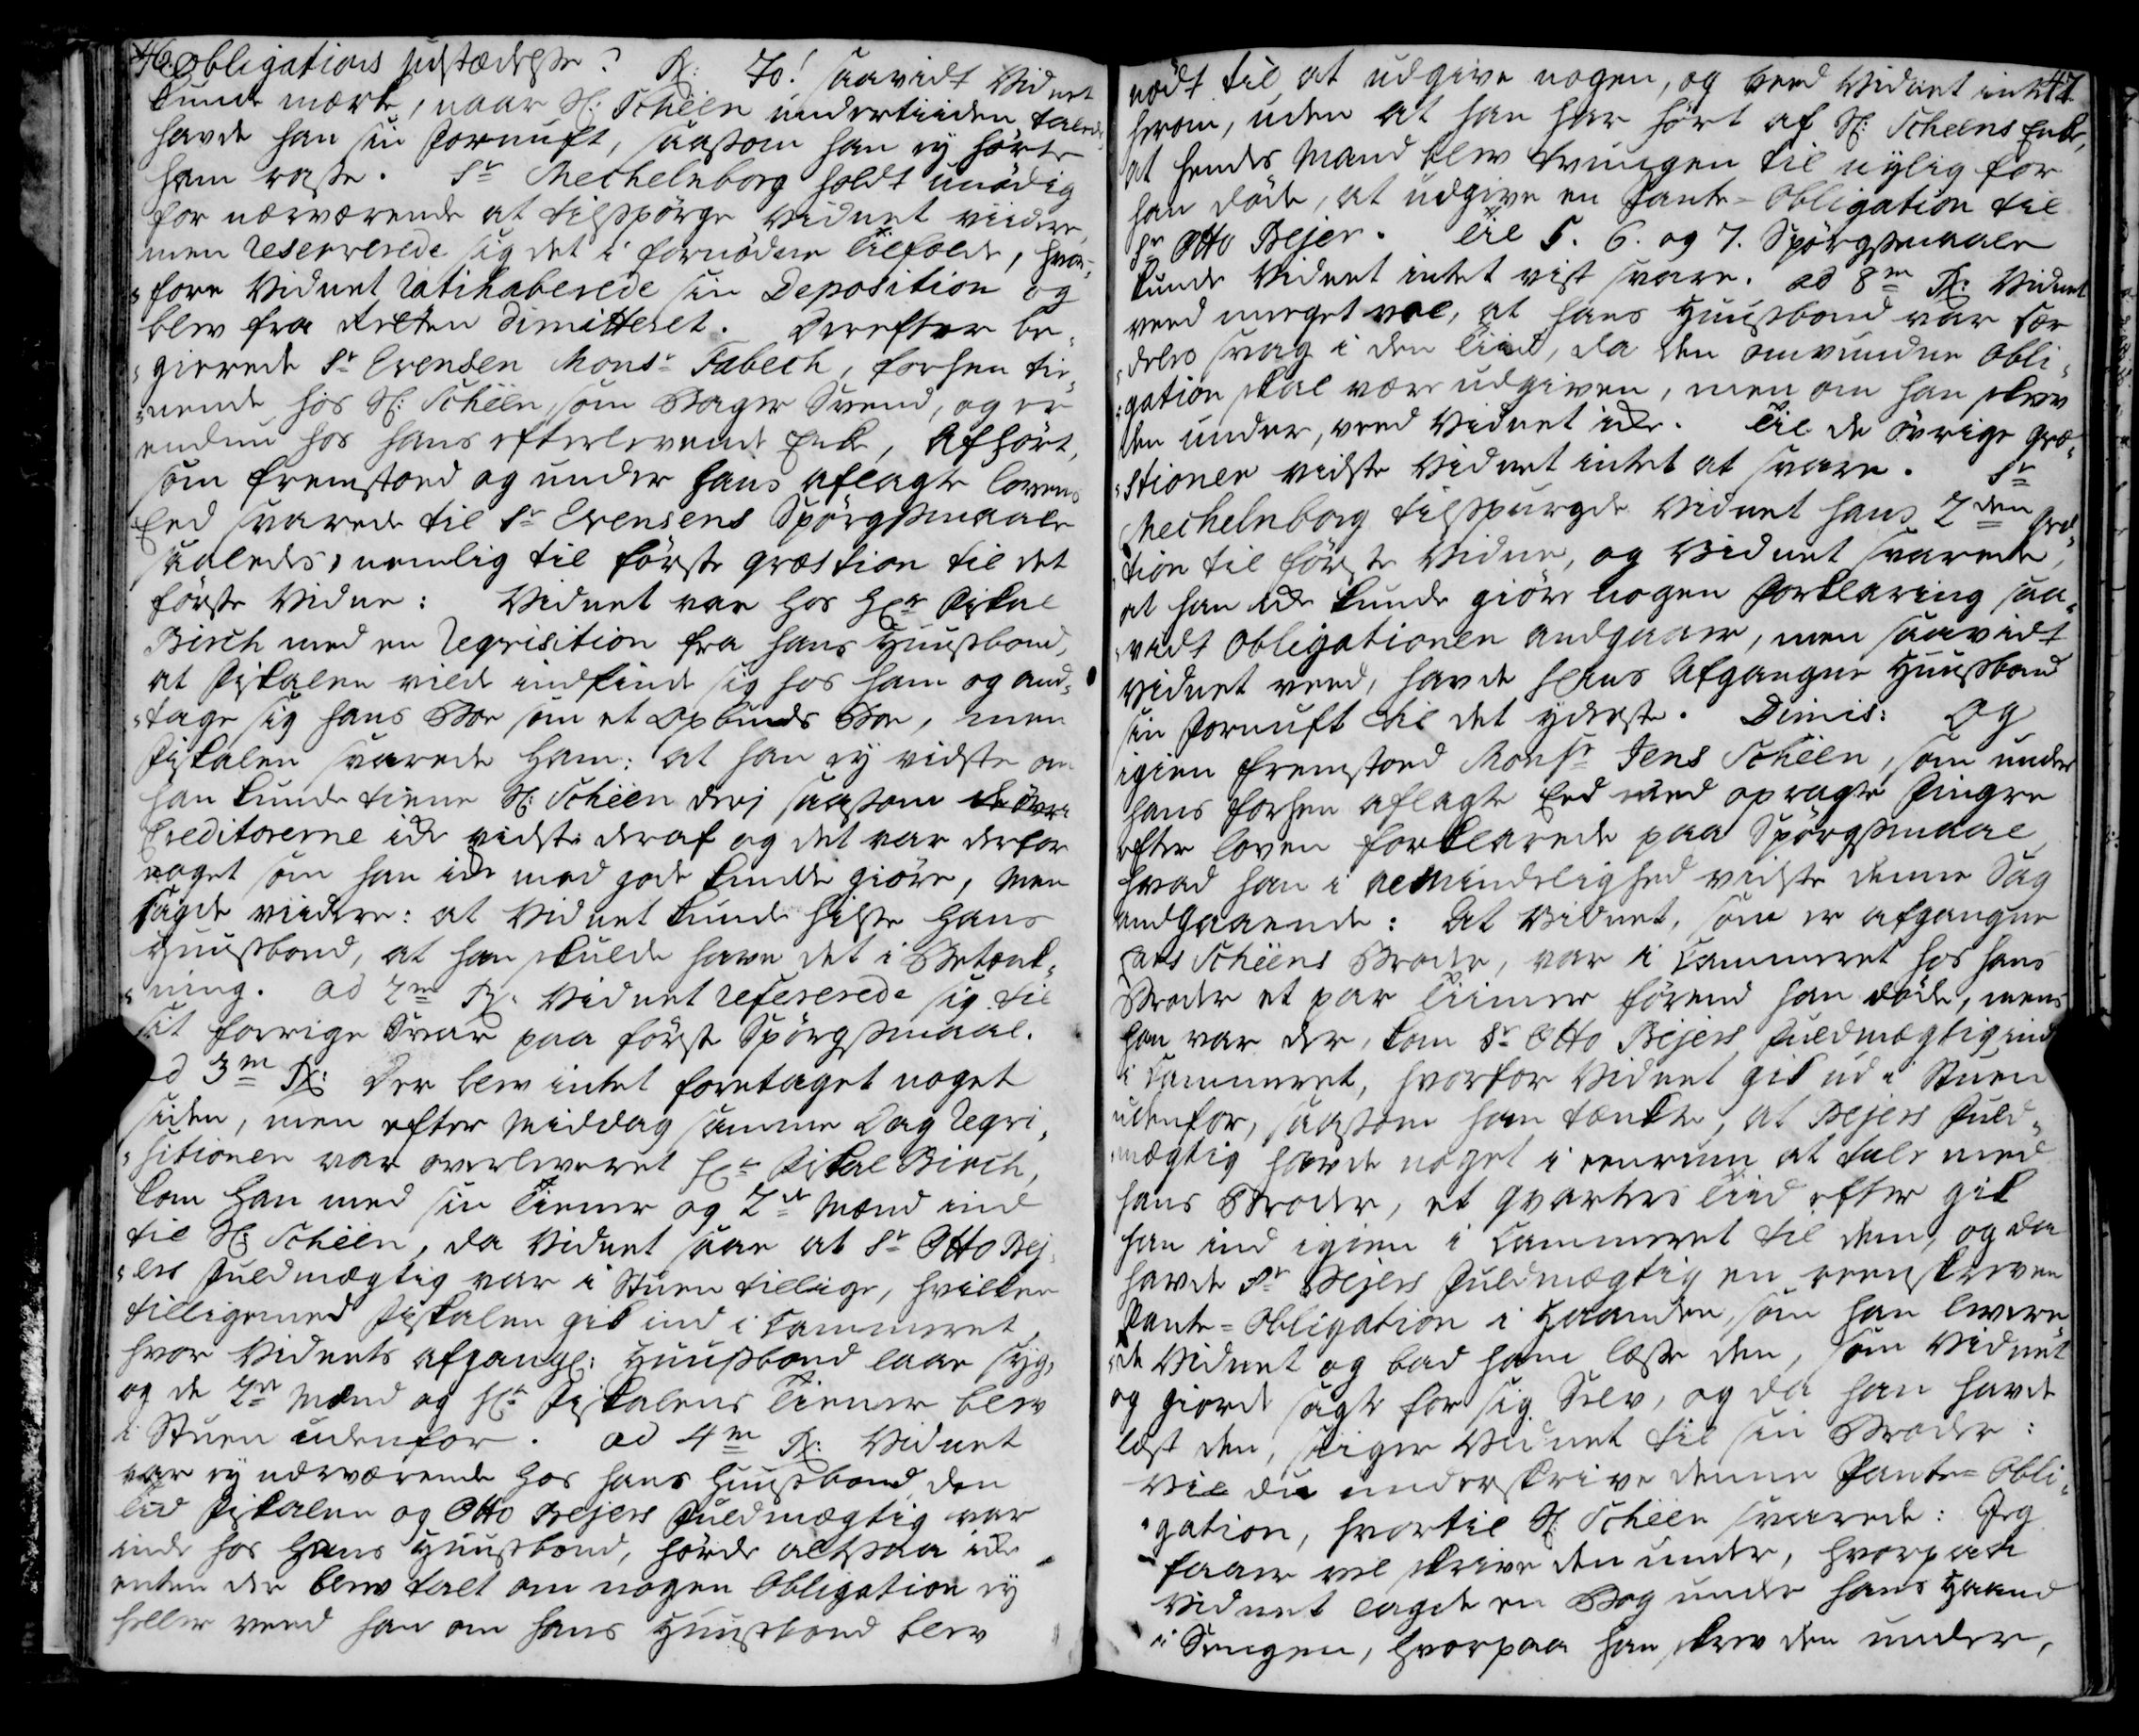 46.
Obligations udstædelse? Rx: Jo! saavidt Vidnet
kunde merke, naar Sl: Schëen undertiiden talede
havde han sin Fornuft, saasom han ey hørte
ham rase. Sr Mechelnborg holdt unødig
for nærværende at tilspørge Vidnet viidere,
men reserverede sig det i fornødne Tilfælde, hvor-
fore Vidnet ratihaberede sin Deposition og
blev fra Retten dimitteret. Derefter be-
gierede Sr Evensen Monsr Fabech, forhen tie-
nende hos Sl: Schëen, som Bager Svend, og er
endnu hos hans efterlevende Enke, Afhørt,
som fremstoed og under hans aflagte lovens
Eed svarede til Sr Evensens Spørgsmaale
saaledes, nemlig til første qvæstion til det
første Vidne: Vidnet var hos Hr Fiskal
Birch med en reqvisition fra hans Huusbond,
at Fiskalen vilde indfinde sig hos ham og and-
tage sig hans Boe som et Opbuds Boe, men
Fiskalen svarede ham: at han ey vidste om
han kunde tiene Sl: Schëen deri saasom de øvr:
Creditorerne ikke vidste deraf og det var derfor
noget som han ikke med gode kunde giøre, men
sagde viidere: at Vidnet kunde hilse hans
Huusbond, at han skulde have det i Betænk-
ning. ad 2m Rx: Vidnet refererede sig til
sit forrige Svar paa første Spørgsmaal.
ad 3m Rx: Der blev intet foretaget noget
siden, men efter Middag samme Dag reqvi-
sitionen var overleveret Hr Fiskal Birch,
kom han med sin Tiener og 2de Mænd ind
til Sl: Schëen, da Vidnet saae at Sr Otto Bej-
ers Fuldmægtig var i Stuen tillige, hvilken
tilligemed Fiskalen gik ind i Kammeret,
hvor Vidnets afgangl: Huusbond laae syg,
og de 2de Mænd og Hr Fiskalens Tiener blev
i Stuen udenfor. ad 4m Rx: Vidnet
var ey nærværende hos hans Huusbond den
Tiid Fiskalen og Otto Bejers Fuldmægtig var
inde hos hans Huusbond, hørde altsaa ikke
enten der blev talt om nogen Obligation ey
heller veed han om hans Huusbond blev
47.
nødt til at udgive nogen, og veed Vidnet intet
herom, uden at han har hørt af Sl: Scheens Enke,
at hendes Mand blev tvungen til nylig før
han døde, at udgive en Pante-Obligation til
Sr Otto Bejer. Til 5. 6. og 7. Spørgsmaale
kunde Vidnet intet vist svare. ad 8m Rx: Vidnet
veed meget vel, at hans Huusbond var sær
deles svag i den Tiid, da den omvundne Obli-
gation skal være udgiven, men om han skrev
den under, veed Vidnet ikke. Til de øvrige Qvæ-
stioner vidste Vidnet intet at svare. Sr
Mechelnborg tilspurgde Vidnet hans 2den Qvæ-
stion til første Vidne, og Vidnet svarede,
at han ikke kunde giøre nogen Forklaring saa-
vidt Obligationen andgaaer, men saavidt
Vidnet veed, havde hans Afgangne Huusbond
sin Fornuft til det yderste. Dimis: Og
igien fremstoed Monsr Jens Schëen, som under
hans forhen aflagte Eed med opragte Fingre
efter loven forklarede paa Spørgsmaal,
hvad han i almindelighed vidste denne Sag
andgaaende: At Vidnet, som er afgangne
Schëens Broder, var i Kammeret hos hans
Broder et par Tiimer førend han døde, mens
han var der, kom Sr Otto Bejers Fuldmægtig ind
i Kammeret, hvorfor Vidnet gik ud i Stuen
udenfor, saasom han tænkte, at Bejers Fuld-
mægtig havde noget i eenrum at tale med
hans Broder, et qvarteers Tiid efter gik
han ind igien i Kammeret til dem, og da
havde Sr Bejers Fuldmægtig en reenskreven
Pante-Obligation i Haanden, som han levere-
de Vidnet og bad ham læse den, som Vidnet
og giorde sagte for sig Selv, og da han havde
læst den, siiger Vidnet til sin Broder:
Vil du underskrive denne Pante-Obli-
gation, hvortil Sl: Schëen svarede: Jeg
faaer vel skrive den under, hvorpaa
Vidnet lagde en Bog under hans Haand
i Sengen, hvorpaa han skrev den under,